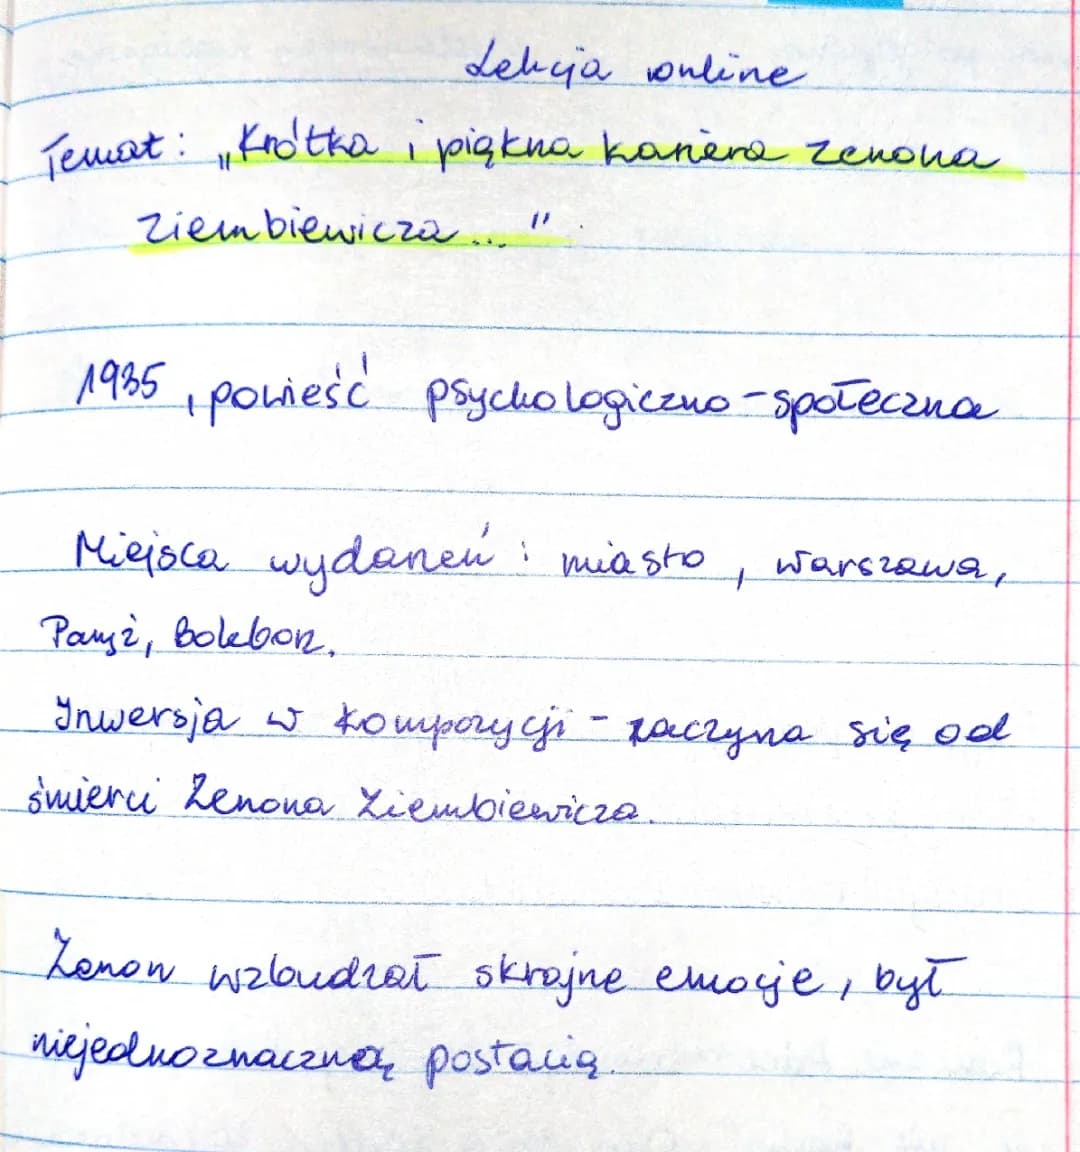 Lekcja online
Temat: „Krótka i piękna kariera Zenona
Ziembiewicza..."
1935, powieść psychologiczno-społeczna
Miejsca wydarzeń: miasto, Warszawa,
Paryż, Boleborz.
Inwersja w kompozycji - zaczyna się od
śmierci Zenona Ziembiewicza.
Zenon wzbudzał skrajne emocje, był
niejednoznaczną postacią.